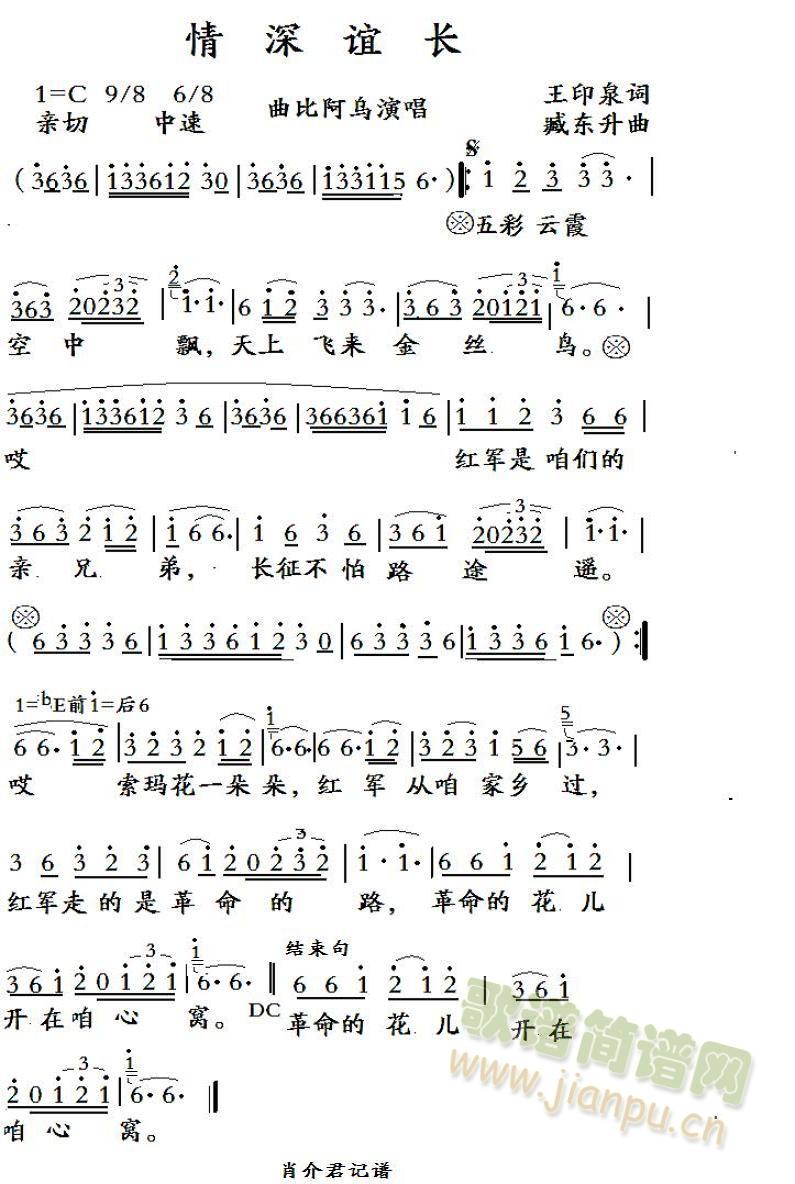 情深谊长
1=C 9/8 6/8 曲比阿乌演唱 王印泉词
亲切 中速 臧东升曲
(3636 | 133612 30 | 3636 | 133115 6· ) |: 1 2 3 3 3· |
※五彩 云霞
363 20232 | 1· 1· | 6 12 3 3 3· | 363 20121 | 6· 6· |
空 中 飘, 天上 飞来 金 丝 鸟。※
3636 | 133612 3 6 | 3636 | 366361 1 6 | 1 1 2 3 6 6 |
哎 红军是 咱们的
3 6 3 2 1 2 | 1 6 6· | 1 6 3 6 | 3 6 1 20232 | 1· 1· |
亲 兄 弟, 长征不 怕 路 途 遥。
※ ※
( 6 3 3 3 6 | 1 3 3 6 1 2 3 0 | 6 3 3 3 6 | 1 3 3 6 1 6· ) :|
1=bE前1=后6
6 6· 1 2 | 3 2 3 2 1 2 | 6· 6· | 6 6· 1 2 | 3 2 3 1 5 6 | 3· 3· |
哎 索玛花一朵 朵, 红 军 从咱 家乡 过,
3 6 3 2 3 | 6 1 2 0 2 3 2 | 1· 1· | 6 6 1 2 1 2 |
红军走 的 是 革 命 的 路, 革命的 花 儿
3 6 1 2 0 1 2 1 | 6· 6· || 结束句 6 6 1 2 1 2 | 3 6 1
开 在 咱 心 窝。 DC 革命的 花 儿 开 在
2 0 1 2 1 | 6· 6· ||
咱 心 窝。
歌谱简谱网
www.jianpu.cn
肖介君记谱